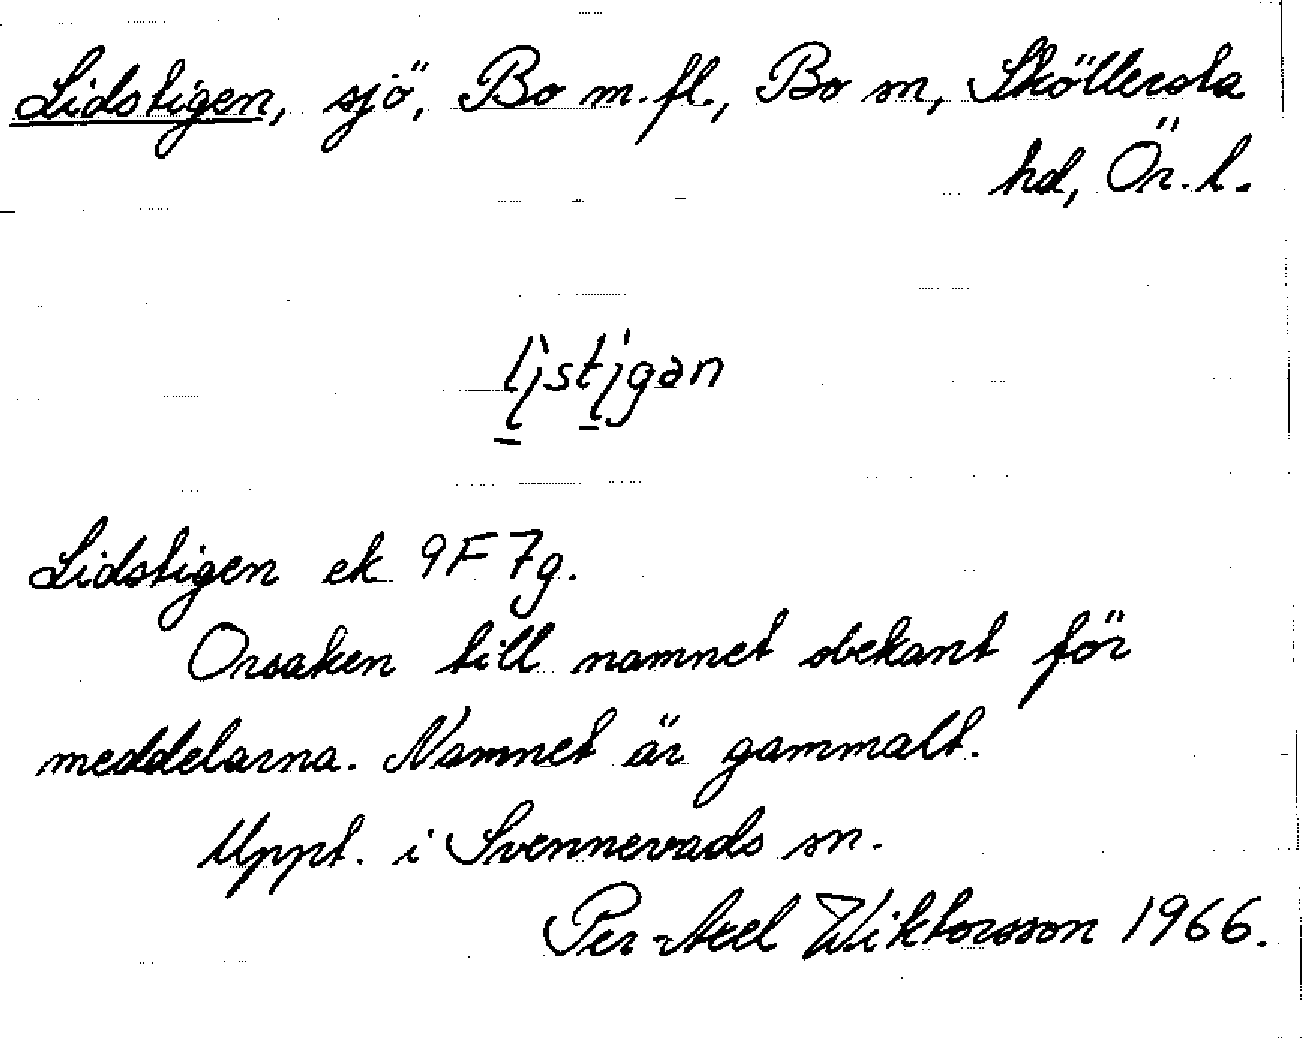 Lidstigen, sjö, Bo m.fl., Bo sn, Sköllersta
hd, Ör. l.
lístígan
Lidstigen ek 9F 7g.
Orsaken till namnet obekant för
meddelarna. Namnet är gammalt.
Uppt. i Svennevads sn.
Per-Axel Wiktorsson 1966.